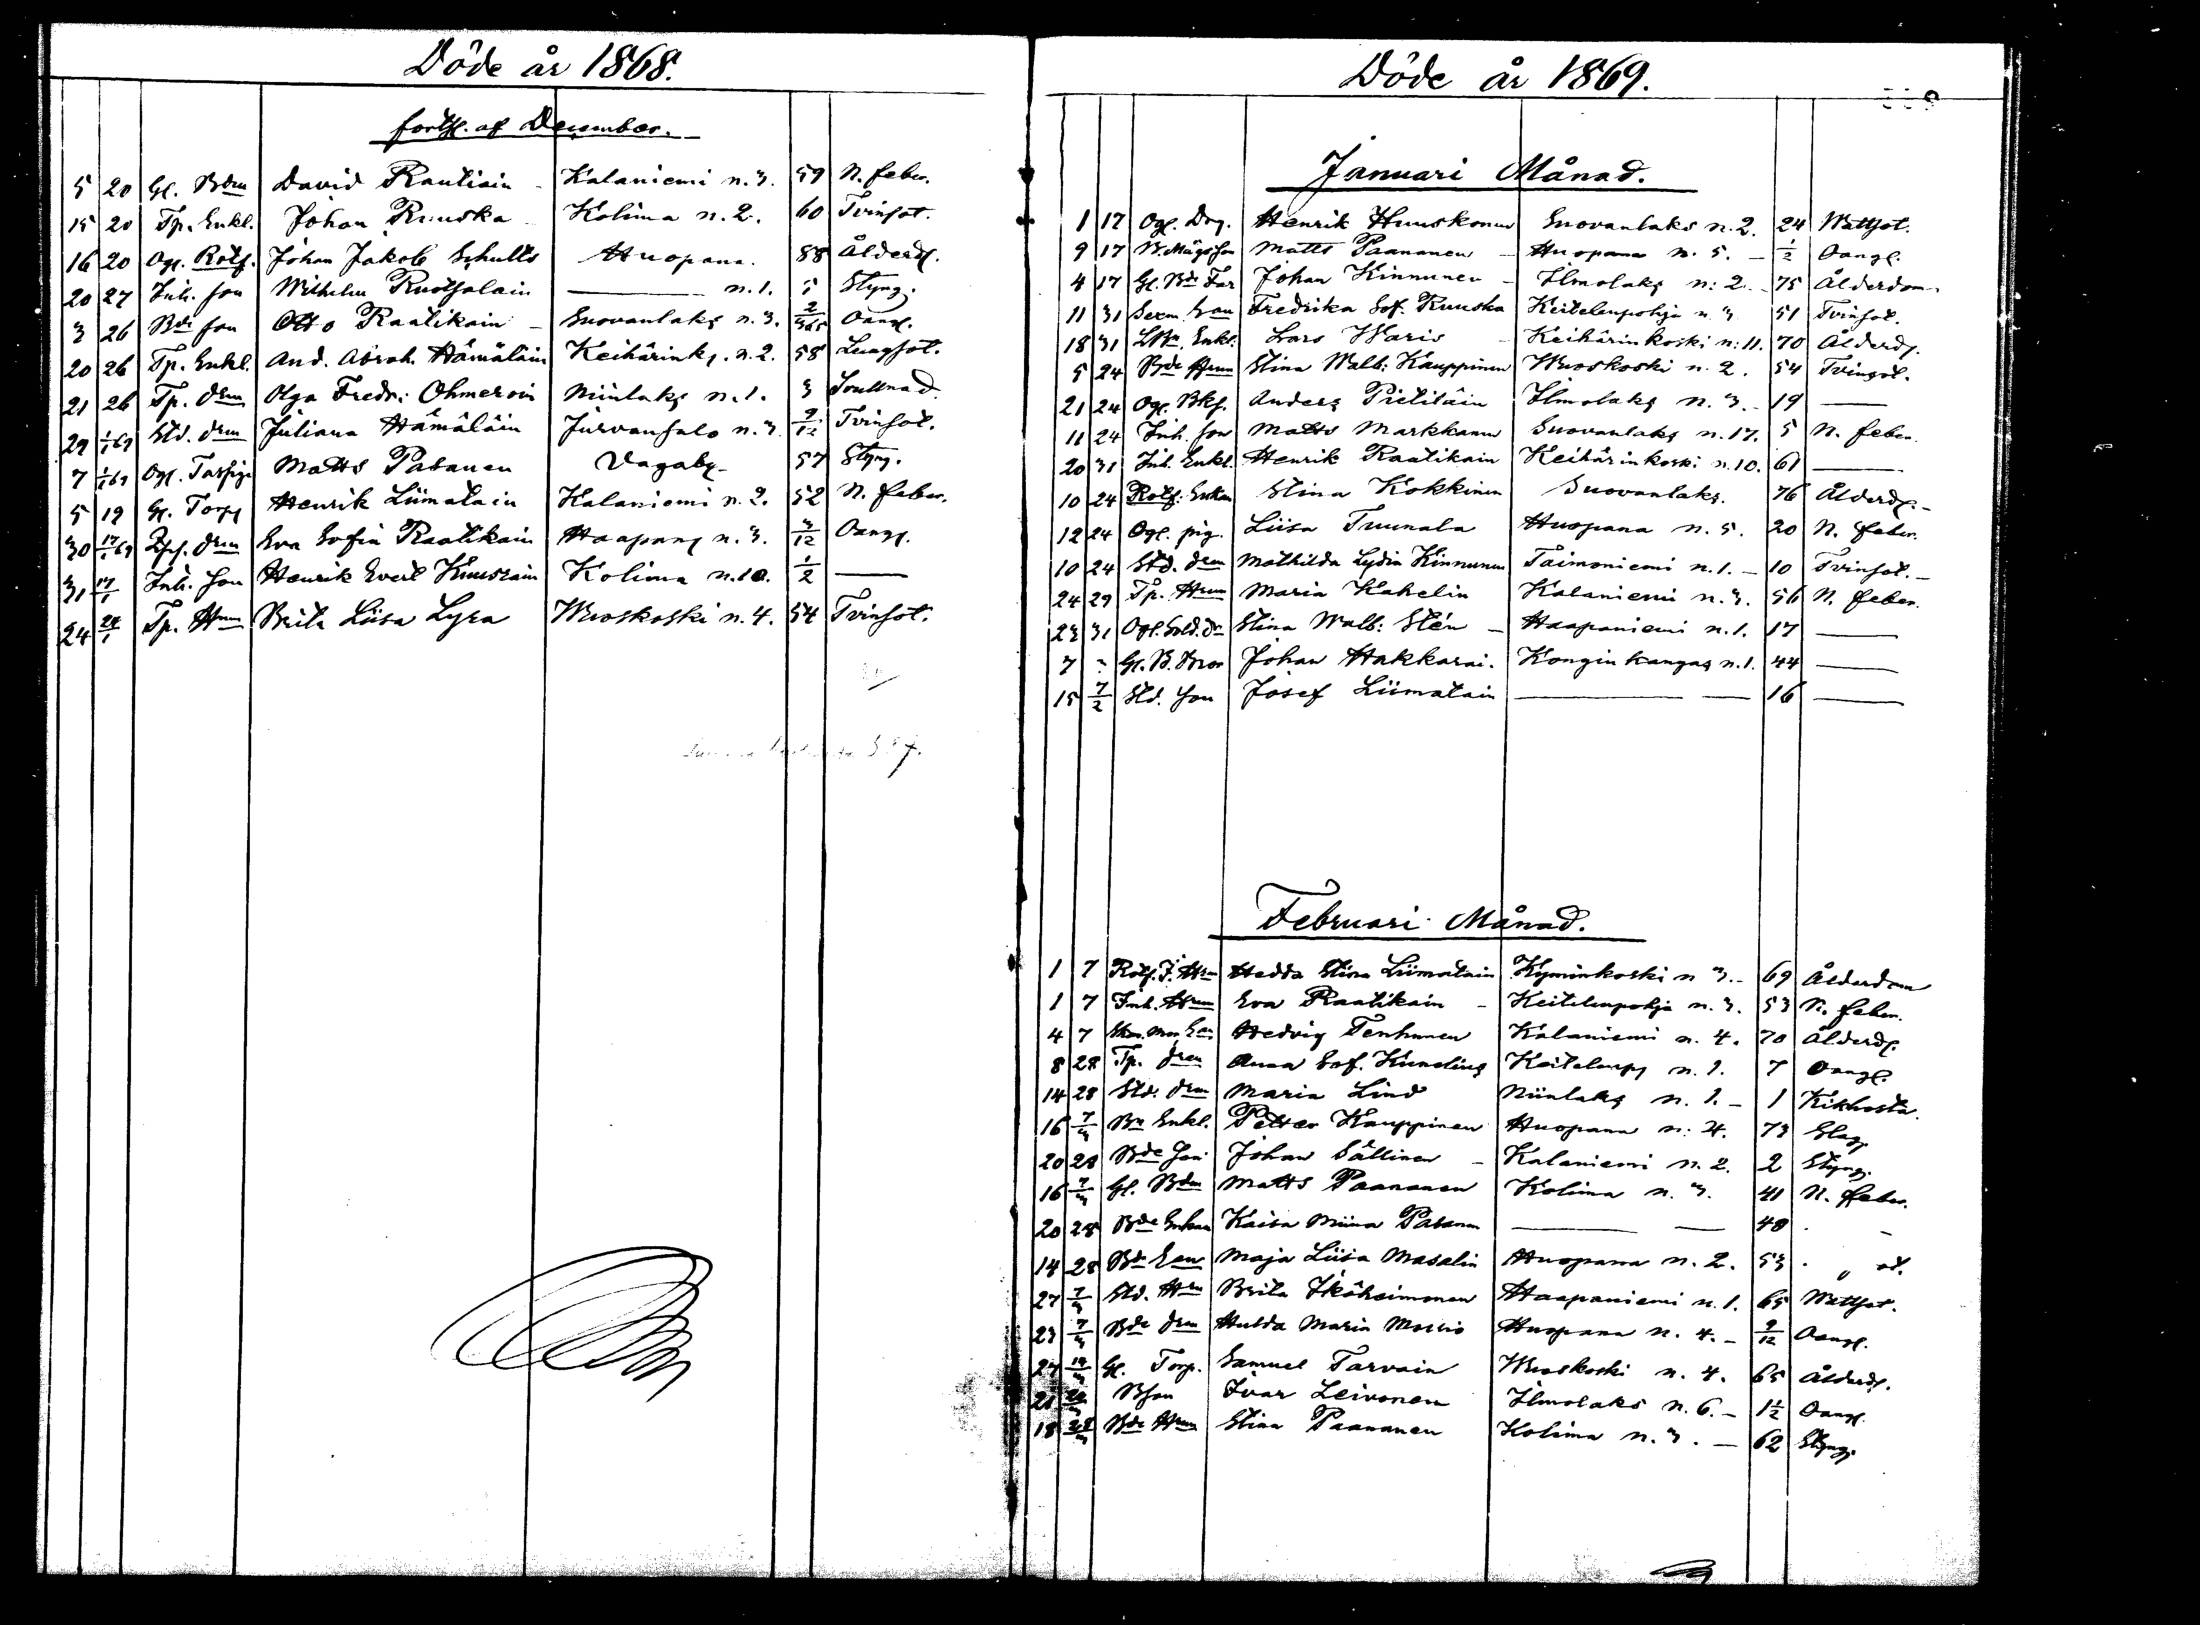 Döde år 1868.
forts. af December.
5 20 Gl. Bdm David Rautiain - Kalaniemi n. 3. 59 N. feber.
15 20 Tp. Enkl. Johan Ruuska - Kolima n. 2. 60 Tvinsot.
16 20 Ogl. Rotf. Johan Jakob Schults Huopana. 88 Ålderds.
20 27 Inh. son Wilhelm Ruotsalain —— n. 1. 5 Styng.
3 26 Bde son Otto Raatikain - Suovanlaks n. 3. 2/365 Oangf.
20 26 Tp. Enkl. And. Abrah. Hämäläin Keihärinks. n. 2. 58 Lungsot.
21 26 Tp. drm Olga Fredr: Ohmeroin Niinlaks n. 1. 3
29 1/1 69 Std. drm Juliana Hämäläin Jurvansalo n. 3 9/12 Tvinsot.
7 1/1 69 Ogl. Matts Pasanen Vagab. 57 Styng.
5 19 Gl. Torp Henrik Liimatain Kalaniemi n. 2. 52 N. feber.
30 17/1 69 drm Eva Sofia Raatikain Haapans n. 3. 3/12 Oangf.
31 17/1 Inh. son Henrik Evert Kinnrain Kolima n. 10. 1/2 ——
24 24/1 Tp. Hrm Brita Liisa Lyra Wuoskoski n. 4. 54 Tvinsot.

Döde år 1869.
Januari Månad.
1 17 Ogl. Drg. Henrik Huuskonen Suovanlaks n. 2. 24 Wattsot.
9 17 B. Mågs son Matts Paananen - Huopana n. 5. - 1/2 Oangf.
4 17 Gl. Bde Far Johan Kinnunen - Ilmolaks n: 2. - 75 Ålderdom
11 31 Sexm. Ean Fredrika Sof. Ruuska Keitelenpohja n. 3 51 Tvinsot.
18 31 Enkl. Lars Waris - Keihärinkoski n: 11. 70 Ålderds.
5 24 Bde Hrm Stina Walb: Kauppinen Wuoskoski n. 2. 54 Tvinsot.
21 24 Ogl. Bks. Anders Pietiläin Ilmolaks n. 3. - 19 ——
11 24 Inh. son Matts Markkanen Suovanlaks n. 17. 5 N. feber.
20 31 Inh. Enkl. Henrik Raatikain Keihärinkoski n. 10. 61 ——
10 24 Rotf: Enkan Stina Kokkinen Suovanlaks. 76 Ålderds. -
12 24 Ogl. pig. Liisa Tuunala Huopana n. 5. 20 N. feber.
10 24 Std. drm Mathilda Lydia Kinnunen Taimoniemi n. 1. - 10 Tvinsot. -
24 29 Tp. Hrm Maria Kahelin Kalaniemi n. 3. 56 N. feber.
23 31 Ogl. Sold. dr Stina Walb: Stén - Haapaniemi n. 1. 17 ——
7 " Gl. B. Bror Johan Hakkarai. Konginkangas n. 1. 44 ——
15 7/2 Std. son Josef Liimatain —— 16 ——

Februari Månad.
1 7 Rotf. J. Hrm Hedda Stina Liimatain Kyminkoski n 3. - 69 Ålderdom
1 7 Inh. Hrm Eva Raatikain - Keitelenpohja n. 3. 53 N. feber.
4 7 Ean Hedvig Tenhunen Kalaniemi n. 4. 70 Ålderds.
8 28 Tp. drm Anna Sof. Kunelius Keitelenps n. 1. 7 Oangf.
14 28 Std. drm Maria Lind Niinlaks n. 1. - 1 Kikhosta.
16 7/3 Bn Enkl. Petter Kauppinen Huopana n: 4. 73 Slag
20 28 Bde son Johan Sällinen - Kalaniemi n. 2. 2 Styng.
16 7/3 Gl. Bdm Matts Paananen Kolima n. 3. 41 N. feber.
20 28 Bde Enkan Kaisa Miina Pasanen —— 48 . -
14 28 Bde Ean Maja Liisa Masalin Huopana n. 2. 53 . "
27 7/3 Std. Hrm Brita Ikäheimonen Haapaniemi n. 1. 65 Wattsot.
23 7/3 Bde drm Hulda Maria Huopana n. 4. - 9/12 Oangf.
27 14/3 Gl. Torp. Samuel Tarvain Wuoskoski n. 4. 65 Ålderds.
21 Bson Ivar Leivonen Ilmolaks n. 6. - 1 1/2 Oangf.
18 28/3 Bde Hrm Stina Paananen Kolima n. 3. - 62 Styng.